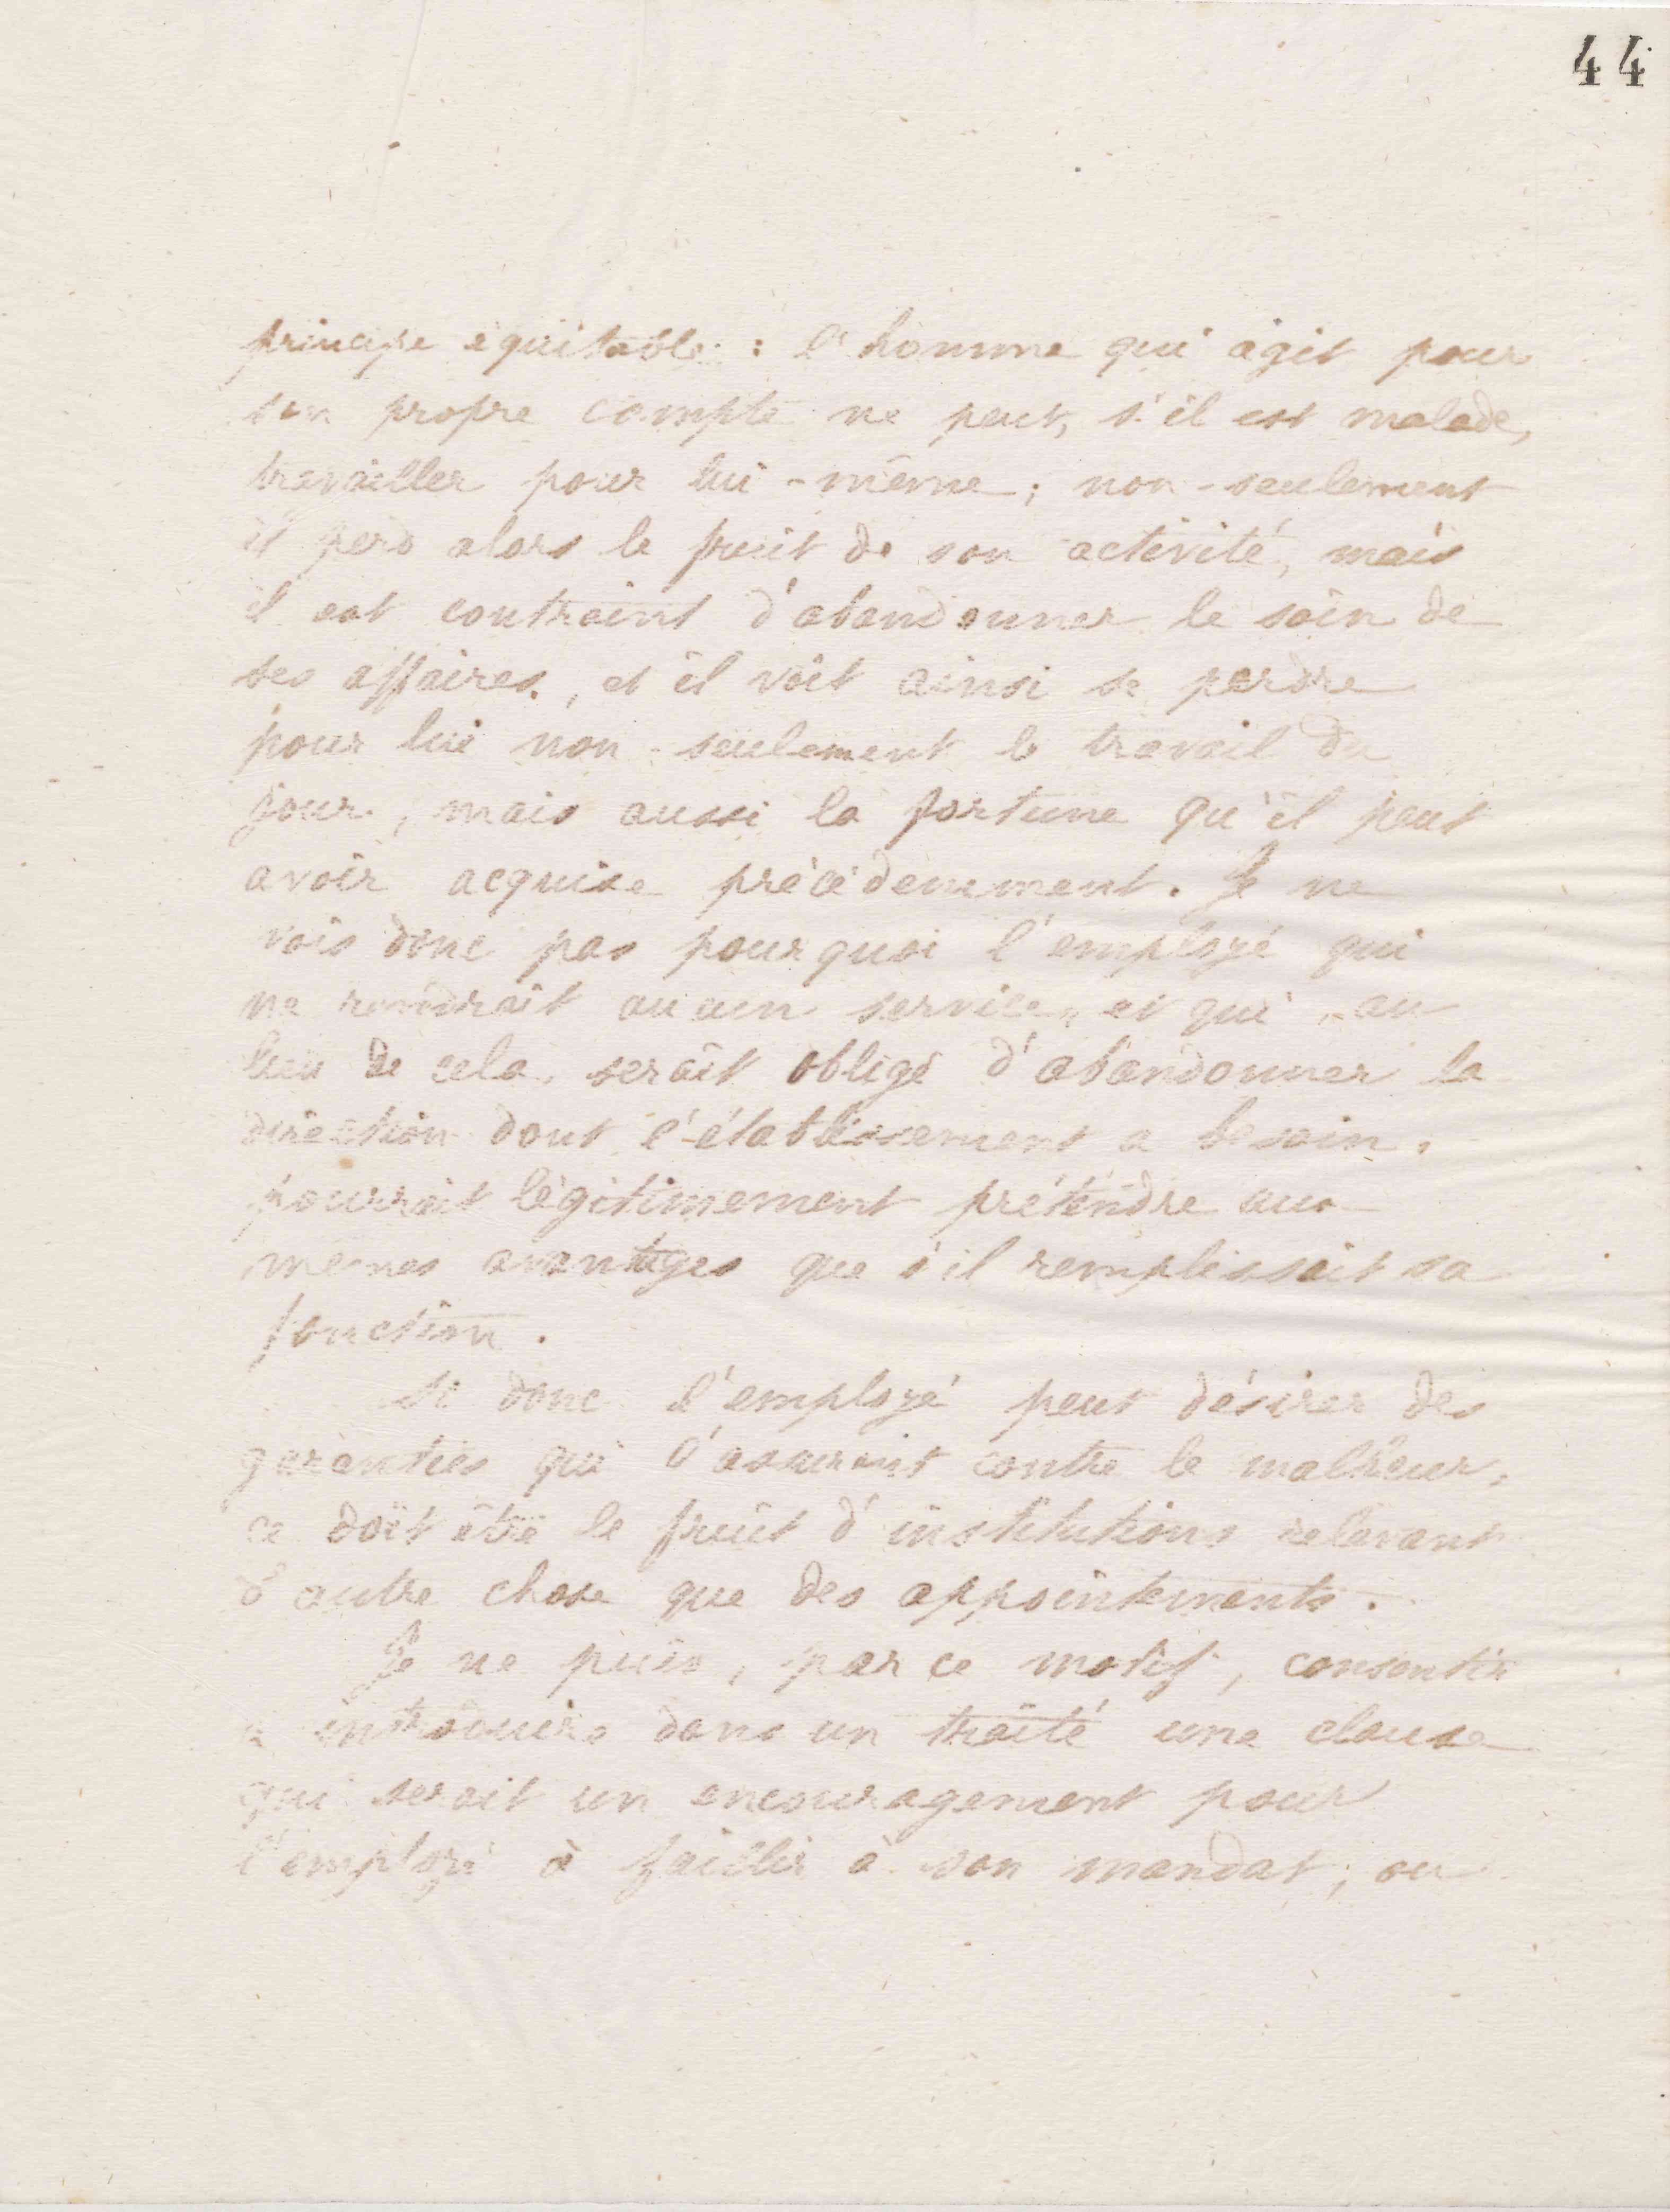 44
principe équitable : l'homme qui agit pour
son propre compte ne peut, s'il est malade,
travailler pour lui-même ; non-seulement
il perd alors le fruit de son activité, mais
il est contraint d'abandonner le soin de
ses affaires, et il voit ainsi se perdre
pour lui non-seulement le travail du
jour, mais aussi la fortune qu'il peut
avoir acquise précédemment. Je ne
vois donc pas pourquoi l'employé qui
ne rendrait aucun service, et qui, au
lieu de cela, serait obligé d'abandonner la
direction dont l'établissement a besoin,
pourrait légitimement prétendre aux
mêmes avantages que s'il remplissait sa
fonction.
Si donc l'employé peut désirer des
garanties qui l'assurent contre le malheur,
ce doit être le fruit d'institutions relevant
d'autre chose que des appointements.
Je ne puis, par ce motif, consentir
à introduire dans un traité une clause
qui serait un encouragement pour
l'employé à faillir à son mandat ; ou